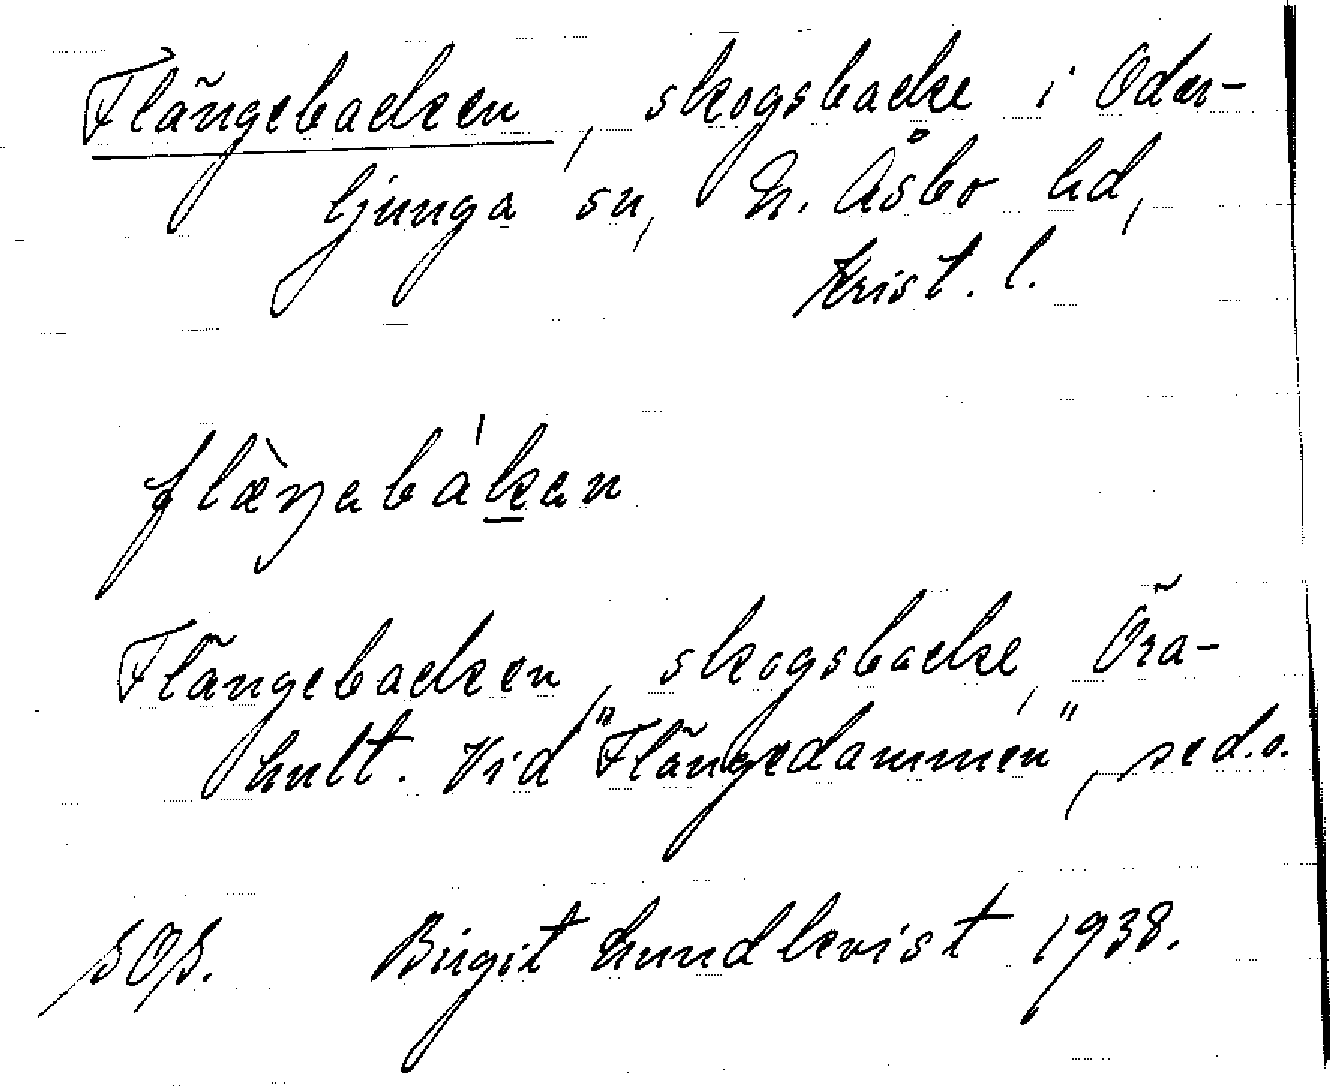 Flängebacken, skogsbacke i Oder-
ljunga sn, N. Åsbo hd,
Krist. l.
flæ̀ŋəbàkən
Flängebacken, skogsbacke, Öra-
hult. Vid "Flängedammen", se d.o.
SOS. Birgit Lundkvist 1938.